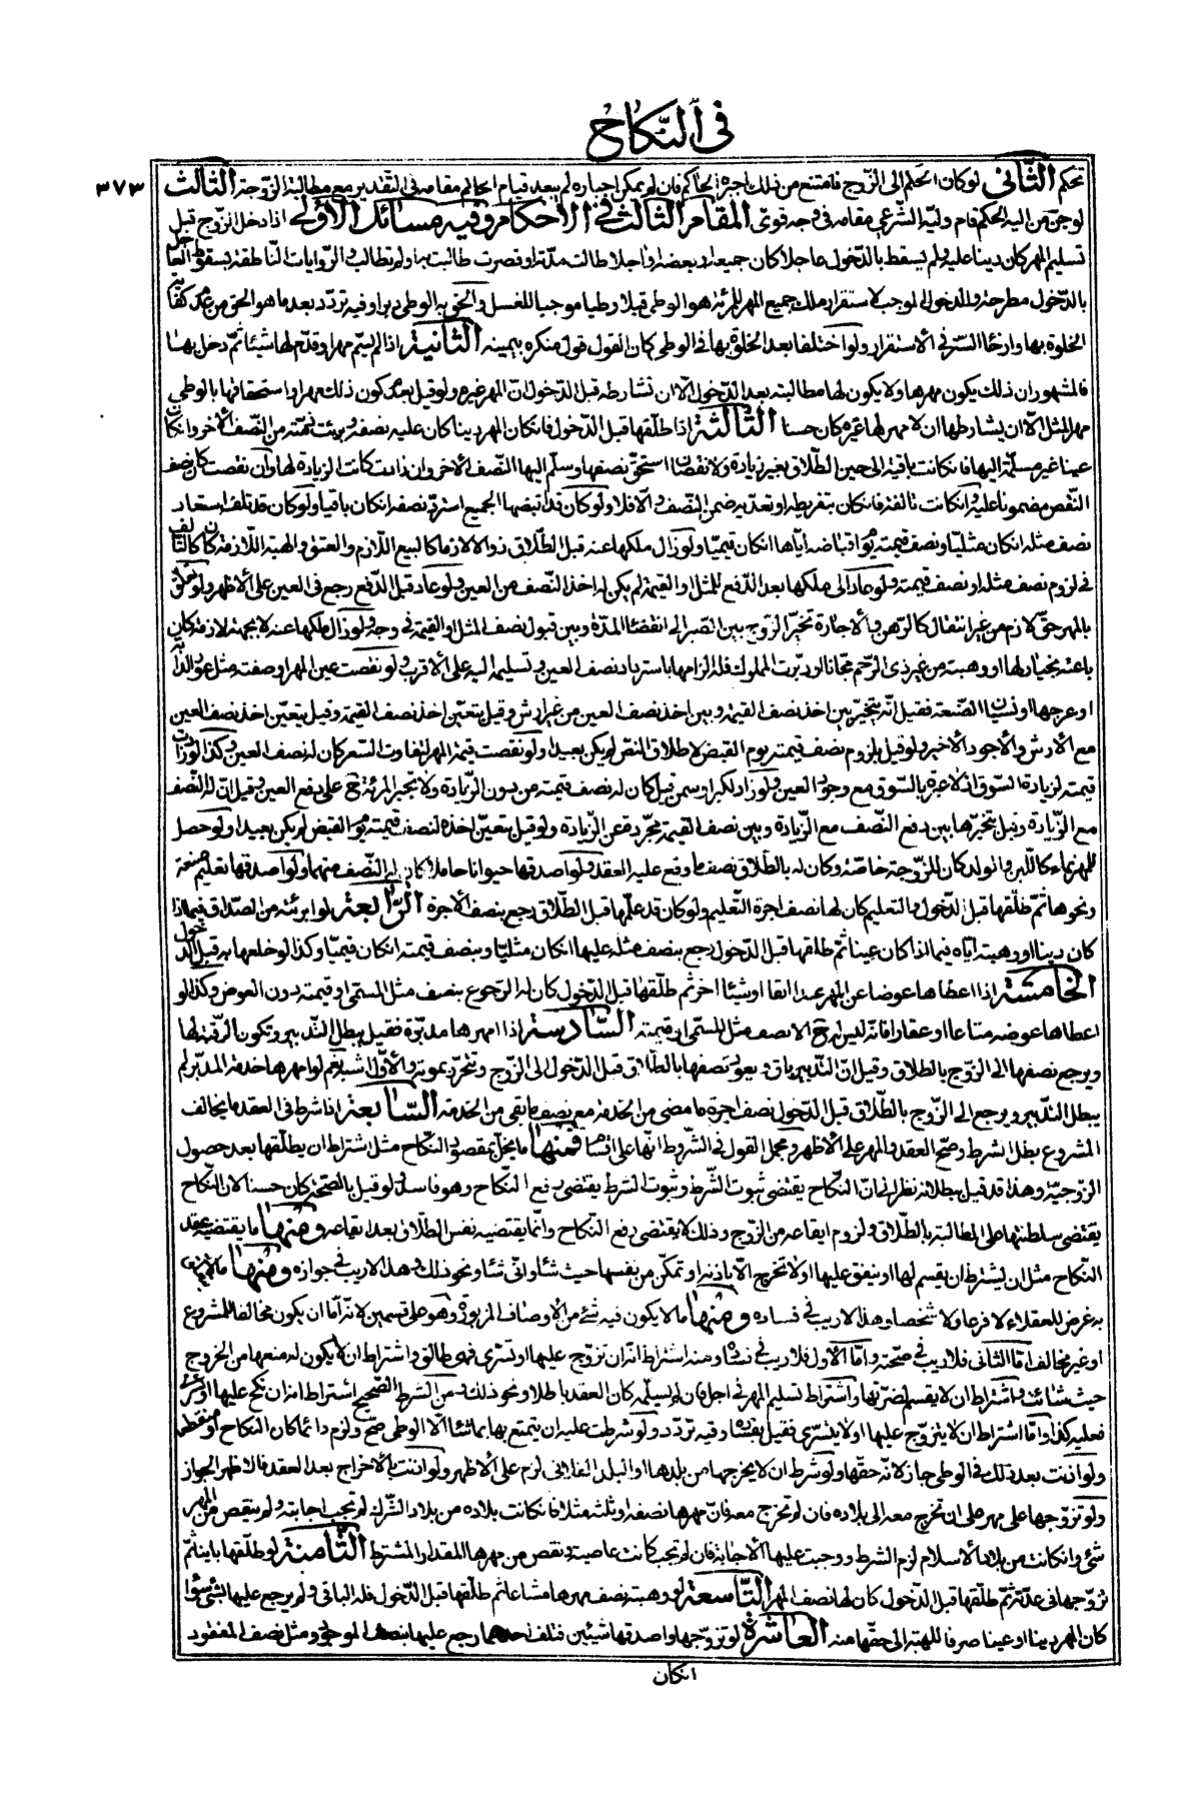 فى النّكاح
٣٧٣
تحكم الثّانى لو كان الحكم الى الزّوج فامتنع من ذلك اجبره الحاكم فان لم يمكن اجباره لم يبعد قيام الحاكم مقامه فى التّقدير مع مطالبة الزّوجة الثالث
لو جنّ من اليه الحكم قام وليّه الشّرعى مقامه فى وجه قوىّ المقام الثالث فى الأحكام وفيه مسائل الأولى اذا دخل الزّوج قبل
تسليم المهر كان دينا عليه ولم يسقط بالدّخول عاجلا كان جميعه او بعضه او اجلا طالت مدّته او قصرت طالبت به او لم تطالب والرّوايات النّاطقة بسقوط العاجل
بالدّخول مطرحة والدخول الموجب لاستقرار ملك جميع المهر للمرئة هو الوطى قبلا وطيا موجبا للغسل والحق به الوطى دبرا وفيه تردّد بعد ما هو الحق من عدم كفاية
الخلوة بها وارخاء السّتر فى الأستقرار ولو اختلفا بعد الخلوة بها فى الوطى كان القول قول منكره بيمينه الثّانية اذا لم يسمّ مهرا وقدّم لها شيئا ثمّ دخل بها
فالمشهور ان ذلك يكون مهرها ولا يكون لها مطالبته بعد الدّخول الّا ان تشارطه قبل الدّخول انّ المهر غيره ولو قيل بعدم كون ذلك مهرا واستحقاقها بالوطى
مهر المثل الّا ان يشارطها ان لا مهر لها غيره كان حسنا الثّالثة اذا طلّقها قبل الدّخول فان كان المهر دينا كان عليه نصفه وبرئت ذمّته من النّصف الأخر وان كان
عينا غير مسلّمة اليها فان كانت باقية الى حين الطّلاق بغير زيادة ولا نقصان استحقّ نصفها وسلّم اليها النّصف الأخر وان زادت كانت الزيادة لها وان نقصت كان نصف
النّقص مضمونا عليه وان كانت تالفة فان كان بتفريطه او تعدّيه ضمن النّصف والّا فلا ولو كان قد اقبضها الجميع استردّ نصفه ان كان باقيا ولو كان قد تلف استعاد
نصف مثله ان كان مثليّا ونصف قيمته يوم اقباضه ايّاها ان كان قيميّا ولو زال ملكها عنه قبل الطّلاق زوالا لازما كالبيع اللّازم والعتق والهبة اللّازمة كان كالتّالف
فى لزوم نصف مثله او نصف قيمته ولو عاد الى ملكها بعد الدّفع للمثل او القيمة لم يكن له اخذ النّصف من العين ولو عاد قبل الدّفع رجع فى العين على الأظهر ولو تعلّق
بالمهر حقّ لازم من غير انتقال كالرّهن والأجارة تخيّر الزّوج بين الصّبر الى انقضاء المدّة وبين قبول نصف المثل او القيمة فى وجه ولو زال ملكها عنه لا بجهة لازمة كان
باعته بخيار لها او وهبته من غير ذى الرّحم مجّانا او دبّرت المملوك فله الزامها باسترداد نصف العين وتسليمه اليه على الأقرب ولو نقصت عين المهر او صفته مثل عور الدّابّة
او عرجها او نسيان الصّنعة فقيل انّه يتخيّر بين اخذ نصف القيمة وبين اخذ نصف العين من غير ارش وقيل يتعيّن اخذ نصف القيمة وقيل يتعيّن اخذ نصف العين
مع الأرش والأجود الأخير ولو قيل بلزوم نصف قيمته يوم القبض لإطلاق النصّ لم يكن بعيدا ولو نقصت قيمة المهر لتفاوت السّعر كان له نصف العين وكذا لو زادت
قيمته لزيادة السّوق اذ لا عبرة بالسّوق مع وجود العين ولو زاد لكبر او سمن قيل كان له نصف قيمته من دون الزّيادة ولا تجبر المرئة ح على دفع العين وقيل انّ له النّصف
مع الزّيادة وقيل بتخيّرها بين دفع النّصف مع الزّيادة وبين نصف القيمة مجرّدة عن الزّيادة ولو قيل بتعيّن اخذه لنصف قيمته يوم القبض لم يكن بعيدا ولو حصل
للمهر نماء كاللّبن والولد كان للزّوجة خاصّة وكان له بالطّلاق نصف ما وقع عليه العقد ولو اصدقها حيوانا حاملا كان له النّصف منهما ولو اصدقها تعليم صنعة
ونحوها ثمّ طلّقها قبل الدّخول والتعليم كان لها نصف اجرة التّعليم ولو كان قد علّمها قبل الطّلاق رجع بنصف الأجرة الرّابعة لو ابرئته من الصّداق فيما اذا
كان دينا او وهبته ايّاه فيما اذا كان عينا ثمّ طلقها قبل الدّخول رجع بنصف مثله عليها ان كان مثليّا وبنصف قيمته ان كان قيميّا وكذا لو خلعها به قبل الدّخول
الخامسة اذا اعطاها عوضا عن المهر عبدا ابقا او شيئا اخر ثمّ طلّقها قبل الدّخول كان له الرّجوع بنصف مثل المسمّى او قيمته دون العوض وكذا لو
اعطاها عوضه متاعا او عقارا فانّه ليس له ح الا نصف مثل المسمّى او قيمته السّادسة اذا امهرها مدبّرة فقيل يبطل التّدبير وتكون الرّقبة لها
ويرجع نصفها الى الزّوج بالطّلاق وقيل انّ التّدبير باق ويعود نصفها بالطّلاق قبل الدّخول الى الزّوج وتتحرّر بموته والأوّل اشبه نعم لو امهرها خدمة المدبّر لم
يبطل التّدبير ويرجع الى الزّوج بالطّلاق قبل الدّخول نصف اجرة ما مضى من الخدمة مع نصف ما بقى من الخدمة السّابعة اذا شرط فى العقد ما يخالف
المشروع بطل الشّرط وصحّ العقد والمهر على الأظهر ومجمل القول فى الشّروط انّها على اقسام فمنها ما يخلّ بمقصود النّكاح مثل اشتراط ان يطلّقها بعد حصول
الزّوجيّة وهذا قد قيل ببطلانه نظرا الى انّ النّكاح يقتضى ثبوت الشّرط وثبوت الشرط يقتضى رفع النّكاح وهو فاسد ولو قيل بالصّحة كان حسنا لان النّكاح
يقتضى سلطنتها على المطالبة بالطّلاق ولزوم ايقاعه من الزّوج وذلك لا يقتضى رفع النّكاح وانّما يقتضيه نفس الطّلاق بعد ايقاعه ومنها ما يقتضيه عقد
النّكاح مثل ان يشترط ان يقسم لها او ينفق عليها او لا تخرج الّا باذنه او تمكّن من نفسها حيث شاء وانّى شاء ونحو ذلك وهذا لا ريب فى جوازه ومنها ما لا يتعلّق
به غرض للعقلاء لا فرعا ولا شخصا وهذا لا ريب فى فساده ومنها ما لا يكون فيه شئ من الأوصاف المزبورة وهو على قسمين لانّه امّا ان يكون مخالفا للمشروع
او غير مخالف امّا الثّانى فلا ريب فى صحّته وامّا الأول فلا ريب فى فساده ومنه اشتراط انّه ان تزوّج عليها او تسرّى فهى طالق واشتراط ان لا يكون له منعها من الخروج
حيث شائت واشتراط ان لا يقسم لضرّتها واشتراط تسليم المهر فى اجل فان لم يسلّمه كان العقد باطلا ونحو ذلك ومن الشرط الصّحيح اشتراط انه ان نكح عليها او تسرّى
فعليه كذا وامّا اشتراط ان لا يتزوّج عليها او لا يتسّرى فقيل بفساده وفيه تردّد ولو شرطت عليه ان يتمتع بها بما شاء الّا الوطى صحّ ولزم دائما كان النّكاح او منقطعا
ولو اذنت بعد ذلك فى الوطى جاز لانّه حقّها ولو شرط ان لا يخرجها من بلدها او البلد الفلانى لزم على الأظهر ولو اذنت بالأخراج بعد العقد فالاظهر الجواز
ولو تزوّجها على مهر على ان تخرج معه الى بلاده فان لم تخرج معه فانّ مهرها نصفه او ثلثه مثلا فان كانت بلاده من بلاد الشّرك لم تجب اجابته ولم ينقص من المهر
شئ وان كانت من بلاد الأسلام لزم الشرط ووجبت عليها الأجابة فان لم تجب كانت عاصية ونقص من مهرها المقدار المشترط الثّامنة لو طلّقها باينا ثمّ
تزوّجها فى عدّته ثمّ طلّقها قبل الدّخول كان لها نصف المهر التّاسعة لو وهبته نصف مهرها مشاعا ثم طلّقها قبل الدّخول فله الباقى ولم يرجع عليها بشئ سواء
كان المهر دينا او عينا صرفا للهبة الى حقّها منه العاشرة لو تزوّجها واصدقها شيئين فتلف احدهما رجع عليها بنصف الموجود ومثل نصف المفقود
ان كان